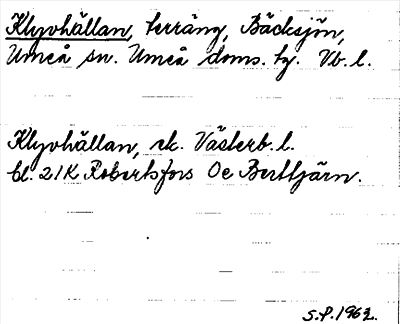 Klyvhällan, terräng, Bäcksjön,
Umeå sn. Umeå doms. tg. Vb. l.
Klyvhällan, ek. Västerb. l.
bl. 21K Robertsfors Oe Berttjärn.
S.P. 1962.